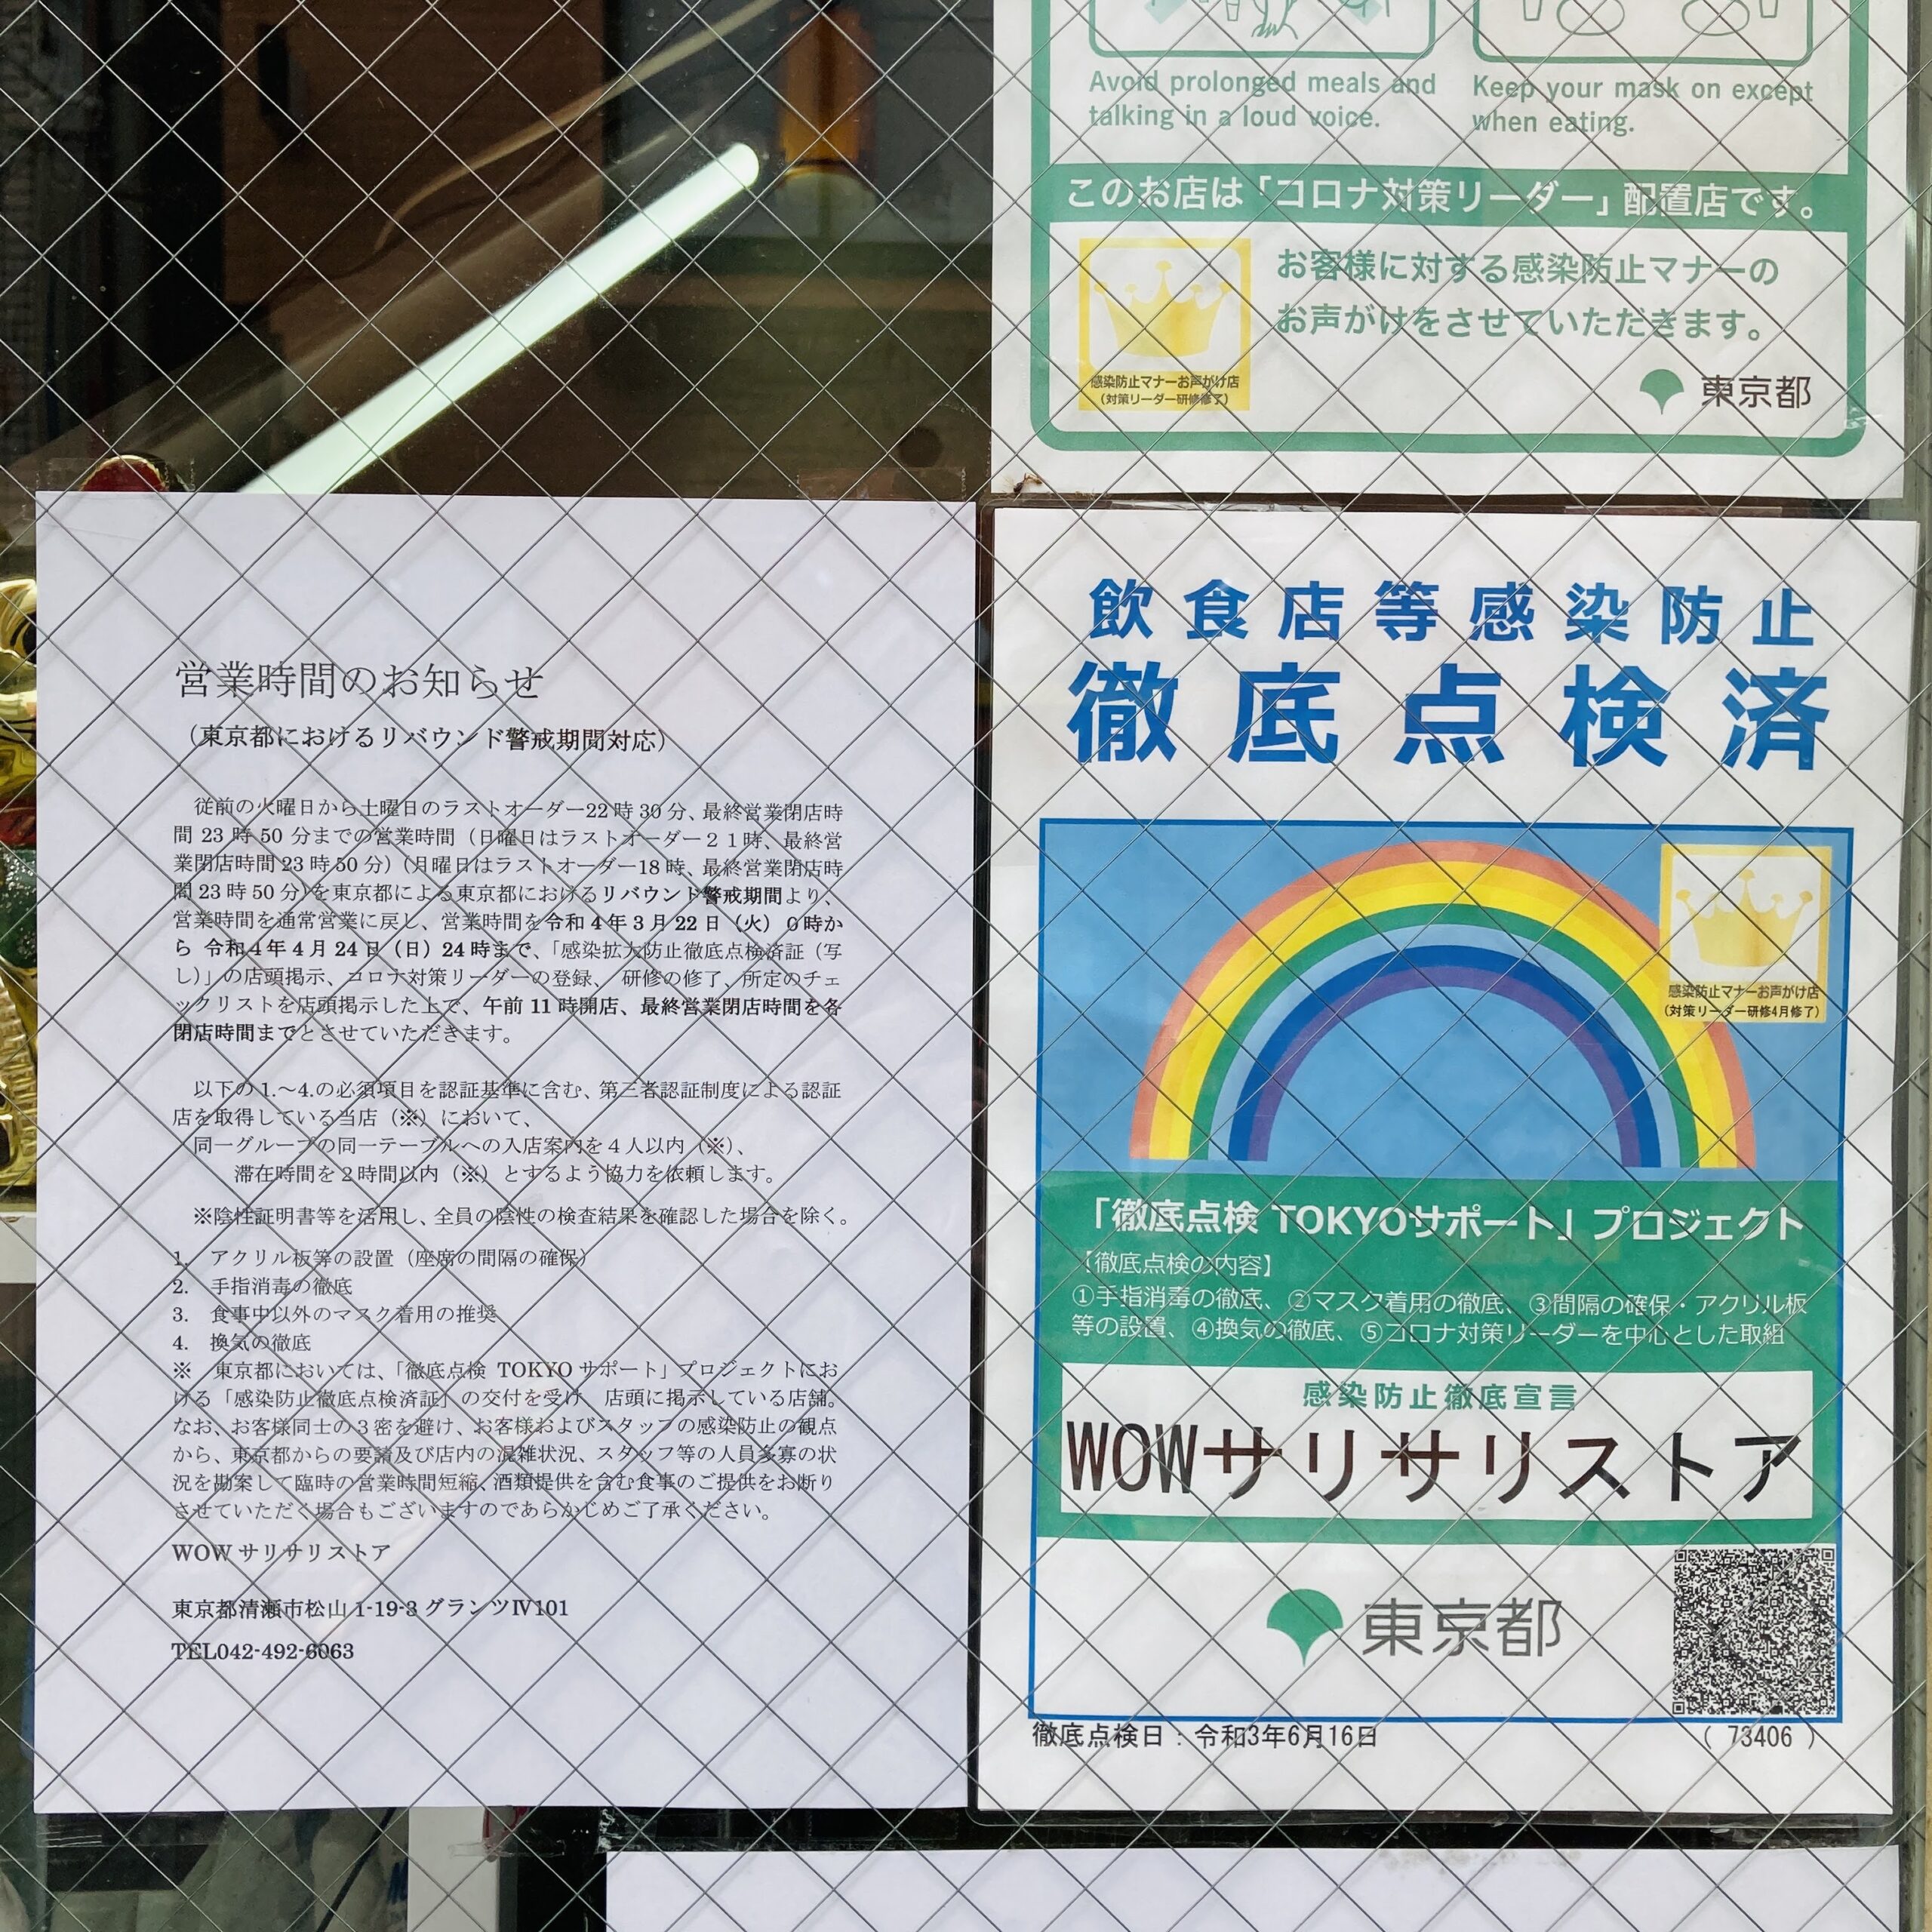 Avoid prolonged meals and
talking in a loud voice.
Keep your mask on except
when eating.
このお店は「コロナ対策リーダー」配置店です。
お客様に対する感染防止マナーの
お声がけをさせていただきます。
感染防止マナーお声がけ店
（対策リーダー研修修了）
東京都
営業時間のお知らせ
（東京都におけるリバウンド警戒期間対応）
従前の火曜日から土曜日のラストオーダー22時30分、最終営業閉店時
間 23 時 50 分までの営業時間（日曜日はラストオーダー２１時、最終営
業閉店時間 23 時 50 分）（月曜日はラストオーダー18 時、最終営業閉店時
間 23 時 50 分）を東京都による東京都におけるリバウンド警戒期間より、
営業時間を通常営業に戻し、営業時間を令和 4 年 3 月 22 日（火）０時か
ら 令和 4 年 4 月 24 日（日）24 時まで、「感染拡大防止徹底点検済証（写
し）」の店頭掲示、コロナ対策リーダーの登録、 研修の修了、所定のチェ
ックリストを店頭掲示した上で、午前 11 時開店、最終営業閉店時間を各
閉店時間までとさせていただきます。
以下の 1.～4.の必須項目を認証基準に含む、第三者認証制度による認証
店を取得している当店（※）において、
同一グループの同一テーブルへの入店案内を 4 人以内（※）、
滞在時間を 2 時間以内（※）とするよう協力を依頼します。
※陰性証明書等を活用し、全員の陰性の検査結果を確認した場合を除く。
1. アクリル板等の設置（座席の間隔の確保）
2. 手指消毒の徹底
3. 食事中以外のマスク着用の推奨
4. 換気の徹底
※ 東京都においては、「徹底点検 TOKYO サポート」プロジェクトにお
ける「感染防止徹底点検済証」の交付を受け、店頭に掲示している店舗。
なお、お客様同士の 3 密を避け、お客様およびスタッフの感染防止の観点
から、東京都からの要請及び店内の混雑状況、スタッフ等の人員多寡の状
況を勘案して臨時の営業時間短縮、酒類提供を含む食事のご提供をお断り
させていただく場合もございますのであらかじめご了承ください。
WOW サリサリストア
東京都清瀬市松山 1-19-3 グランツⅣ101
TEL042-492-6063
飲食店等感染防止
徹底点検済
感染防止マナーお声がけ店
（対策リーダー研修4月修了）
「徹底点検 TOKYOサポート」プロジェクト
【徹底点検の内容】
①手指消毒の徹底、②マスク着用の徹底、③間隔の確保・アクリル板
等の設置、④換気の徹底、⑤コロナ対策リーダーを中心とした取組
感染防止徹底宣言
WOWサリサリストア
東京都
徹底点検日：令和3年6月16日
（ 73406 ）